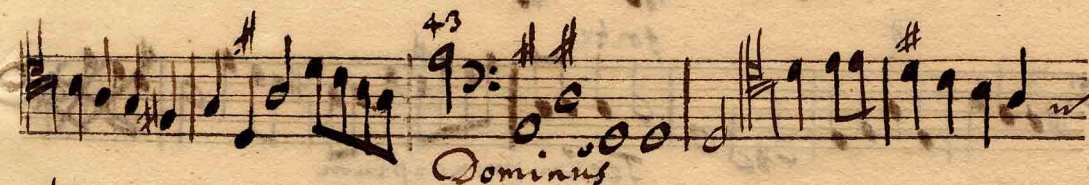 43
Dominus